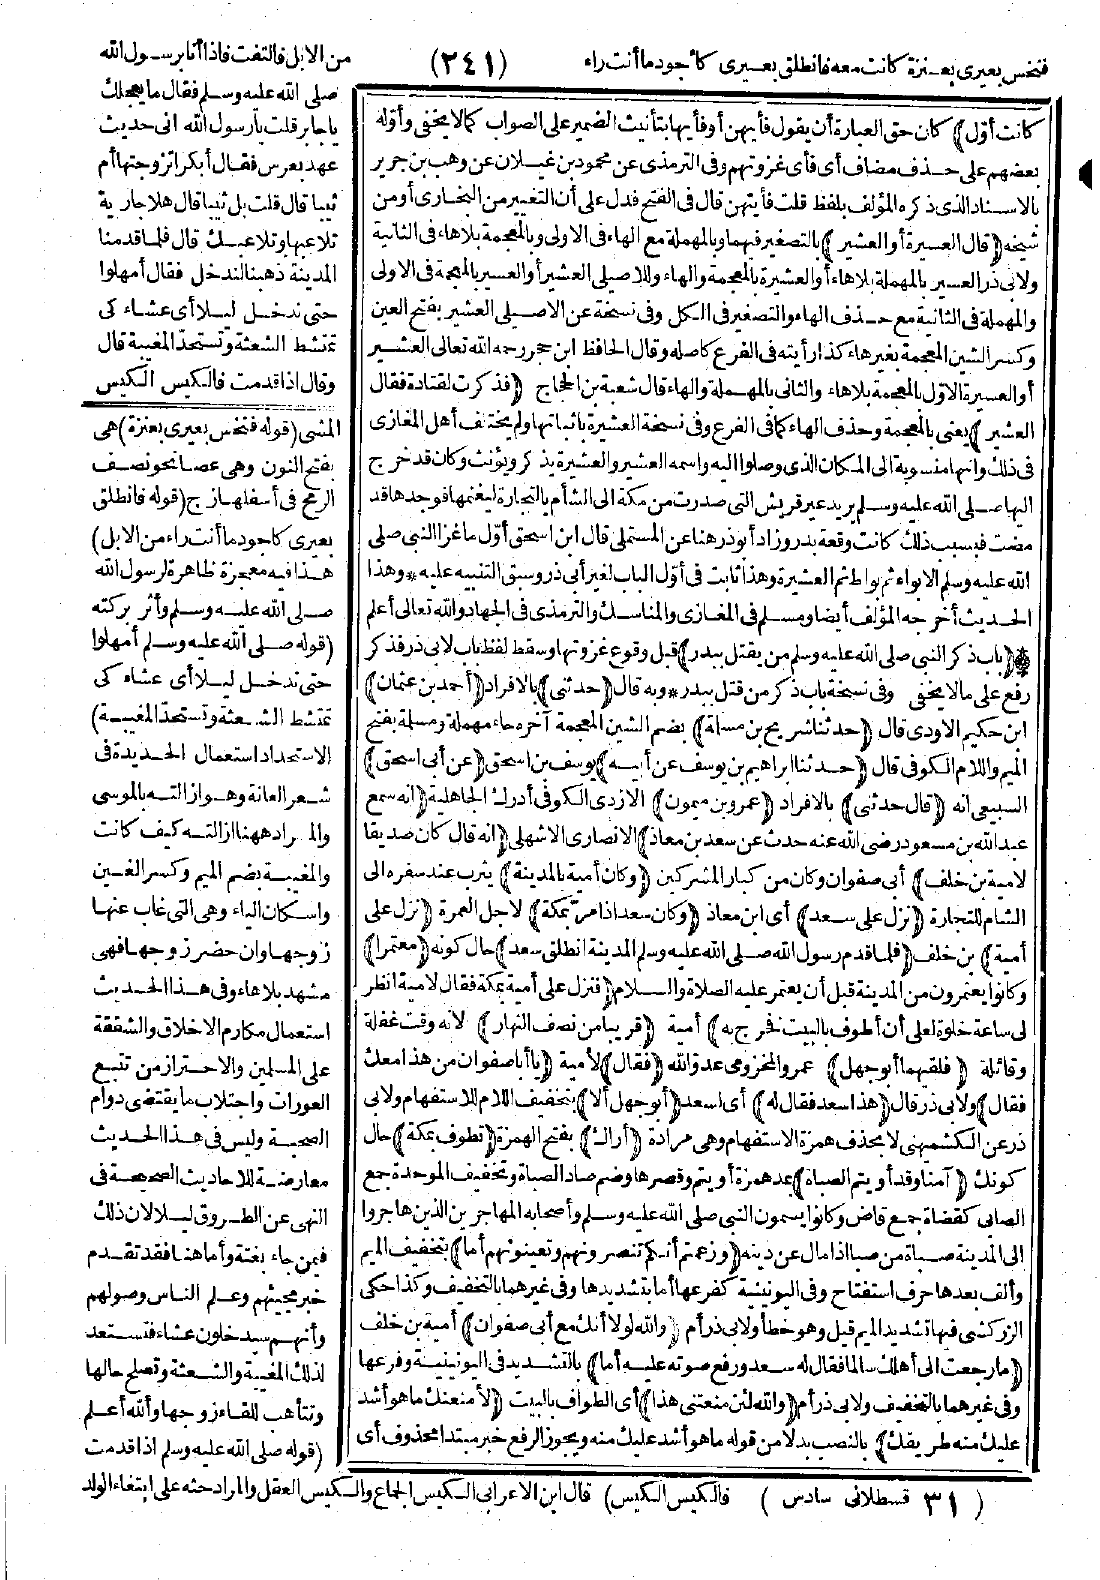 فنخس بعيرى بعنزة كانت معه فانطلق بعيرى كأجود ما أنت راء
(٢٤١)
من الابل فالتفت فاذا أنا برسول الله
صلى الله عليه وسلم فقال ما يعجلك
يا جابر قلت يا رسول الله انى حديث
عهد بعرس فقال أبكرا تزوجتها أم
ثيبا قال قلت بل ثيبا قال هلا جارية
تلاعبها وتلاعبك قال فلما قدمنا
المدينة ذهبنا لندخل فقال أمهلوا
حتى ندخل ليلا أى عشاء كى
تمتشط الشعثة وتستحد المغيبة قال
وقال اذا قدمت فالكيس الكيس
كانت أوّل) كان حق العبارة أن يقول فأيهن أو فأيها بتأنيث الضمير على الصواب كما لا يخفى وأوّله
بعضهم على حذف مضاف أى فأى غزوتهم وفى الترمذى عن محمود بن غيلان عن وهب بن جرير
بالاسناد الذى ذكره المؤلف بلفظ قلت فأيتهن قال فى الفتح فدل على أن التغيير من البخارى أو من
شيخه (قال العسيرة أو العشير) بالتصغير فيهما وبالمهملة مع الهاء فى الاولى وبالمعجمة بلاهاء فى الثانية
ولابى ذر العسير بالمهملة بلاهاء أو العشيرة بالمعجمة والهاء وللاصيلى العشير أو العسير بالمعجمة فى الاولى
والمهملة فى الثانية مع حذف الهاء والتصغير فى الكل وفى نسخة عن الاصيلى العشير بفتح العين
وكسر الشين المعجمة بغير هاء كذا رأيته فى الفرع كاصله وقال الحافظ ابن حجر رحمه الله تعالى العشير
أو العسيرة الاوّل بالمعجمة بلاهاء والثانى بالمهملة والهاء قال شعبة بن الحجاج (فذكرت لقتادة فقال
العشير) يعنى بالمعجمة وحذف الهاء كما فى الفرع وفى نسخة العشيرة باثباتها ولم يختلف أهل المغازى
فى ذلك وانها منسوبة الى المكان الذى وصلوا اليه واسمه العشير والعشيرة يذكر ويؤنث وكان قد خرج
اليها صلى الله عليه وسلم يريد عير قريش التى صدرت من مكة الى الشأم بالتجارة ليغنمها فوجدها قد
مضت فبسبب ذلك كانت وقعة بدر وزاد أبو ذر هنا عن المستملى قال ابن اسحق أوّل ما غزا النبى صلى
الله عليه وسلم الابواء ثم بواط ثم العشيرة وهذا ثابت فى أوّل الباب لغير أبى ذر وسبق التنبيه عليه * وهذا
الحديث أخرجه المؤلف أيضا ومسلم فى المغازى والمناسك والترمذى فى الجهاد والله تعالى أعلم
(باب ذكر النبى صلى الله عليه وسلم من يقتل ببدر) قبل وقوع غزوتها وسقط لفظ باب لابى ذر فذكر
رفع على ما لا يخفى وفى نسخة باب ذكر من قتل ببدر * وبه قال (حدثنى) بالافراد (أحمد بن عثمان)
ابن حكيم الاودى قال (حدثنا شريح بن مسلمة) بضم الشين المعجمة آخره حاء مهملة ومسلمة بفتح
الميم واللام الكوفى قال (حدثنا ابراهيم بن يوسف عن أبيه) يوسف بن اسحق (عن أبى اسحق)
السبيعى انه (قال حدثنى) بالافراد (عمرو بن ميمون) الازدى الكوفى أدرك الجاهلية (انه سمع
عبد الله بن مسعود رضى الله عنه حدث عن سعد بن معاذ) الانصارى الاشهلى (انه قال كان صديقا
لامية بن خلف) أبى صفوان وكان من كبار المشركين (وكان أمية بالمدينة) يثرب عند سفره الى
الشام للتجارة (نزل على سعد) أى ابن معاذ (وكان سعد اذا مرّ بمكة) لاجل العمرة (نزل على
أمية) بن خلف (فلما قدم رسول الله صلى الله عليه وسلم المدينة انطلق سعد) حال كونه (معتمرا)
وكانوا يعتمرون من المدينة قبل أن يعتمر عليه الصلاة والسلام (فنزل على أمية بمكة فقال لامية انظر
لى ساعة خلوة لعلى أن أطوف بالبيت فخرج به) أمية (قريبا من نصف النهار) لانه وقت غفلة
وقائلة (فلقيهما أبو جهل) عمرو المخزومى عدوّ الله (فقال) لأمية (يا أبا صفوان من هذا معك
فقال) ولابى ذر قال (هذا سعد فقال له) أى لسعد (أبو جهل ألا) بتخفيف اللام للاستفهام ولابى
ذر عن الكشميهنى لا بحذف همزة الاستفهام وهى مرادة (أراك) بفتح الهمزة (تطوف بمكة) حال
كونك (آمنا وقد أويتم الصباة) بمد همزة أويتم وقصرها وضم صاد الصباة وتخفيف الموحدة جمع
الصابى كقضاة جمع قاض وكانوا يسمون النبى صلى الله عليه وسلم وأصحابه المهاجرين الذين هاجروا
الى المدينة صباة من صبا اذا مال عن دينه (وزعمتم أنكم تنصرونهم وتعينونهم أما) بتخفيف الميم
وألف بعدها حرف استفتاح وفى اليونينية كفرعها أما بتشديدها وفى غيرهما بالتخفيف وكذا حكى
الزركشى فيها تشديد الميم قيل وهو خطأ ولابى ذر أم (والله لولا أنك مع أبى صفوان) أمية بن خلف
(ما رجعت الى أهلك سالما فقال له سعد ورفع صوته عليه أما) بالتشديد فى اليونينية وفرعها
وفى غيرهما بالتخفيف ولابى ذر أم (والله لئن منعتنى هذا) أى الطواف بالبيت (لأمنعنك ما هو أشد
عليك منه طريقك) بالنصب بدلا من قوله ما هو أشد عليك منه ويجوز الرفع خبر مبتدا محذوف أى
المشى (قوله فنخس بعيرى بعنزة) هى
بفتح النون وهى عصا نحو نصف
الرمح فى أسفلها زج (قوله فانطلق
بعيرى كأجود ما أنت راء من الابل)
هذا فيه معجزة ظاهرة لرسول الله
صلى الله عليه وسلم وأثر بركته
(قوله صلى الله عليه وسلم أمهلوا
حتى ندخل ليلا أى عشاء كى
تمتشط الشعثة وتستحد المغيبة)
الاستحداد استعمال الحديدة فى
شعر العانة وهو ازالته بالموسى
والمراد ههنا ازالته كيف كانت
والمغيبة بضم الميم وكسر الغين
واسكان الياء وهى التى غاب عنها
زوجها وان حضر زوجها فهى
مشهد بلاهاء وفى هذا الحديث
استعمال مكارم الاخلاق والشفقة
على المسلمين والاحتراز من تتبع
العورات واجتلاب ما يقتضى دوام
الصحبة وليس فى هذا الحديث
معارضة للاحاديث الصحيحة فى
النهى عن الطروق ليلا لان ذلك
فيمن جاء بغتة وأما هنا فقد تقدم
خبر مجيئهم وعلم الناس وصولهم
وأنهم سيدخلون عشاء فتستعد
لذلك المغيبة والشعثة وتصلح حالها
وتتأهب للقاء زوجها والله أعلم
(قوله صلى الله عليه وسلم اذا قدمت
فالكيس الكيس) قال ابن الاعرابى الكيس الجماع والكيس العقل والمراد حثه على ابتغاء الولد
(٣١ قسطلانى سادس)